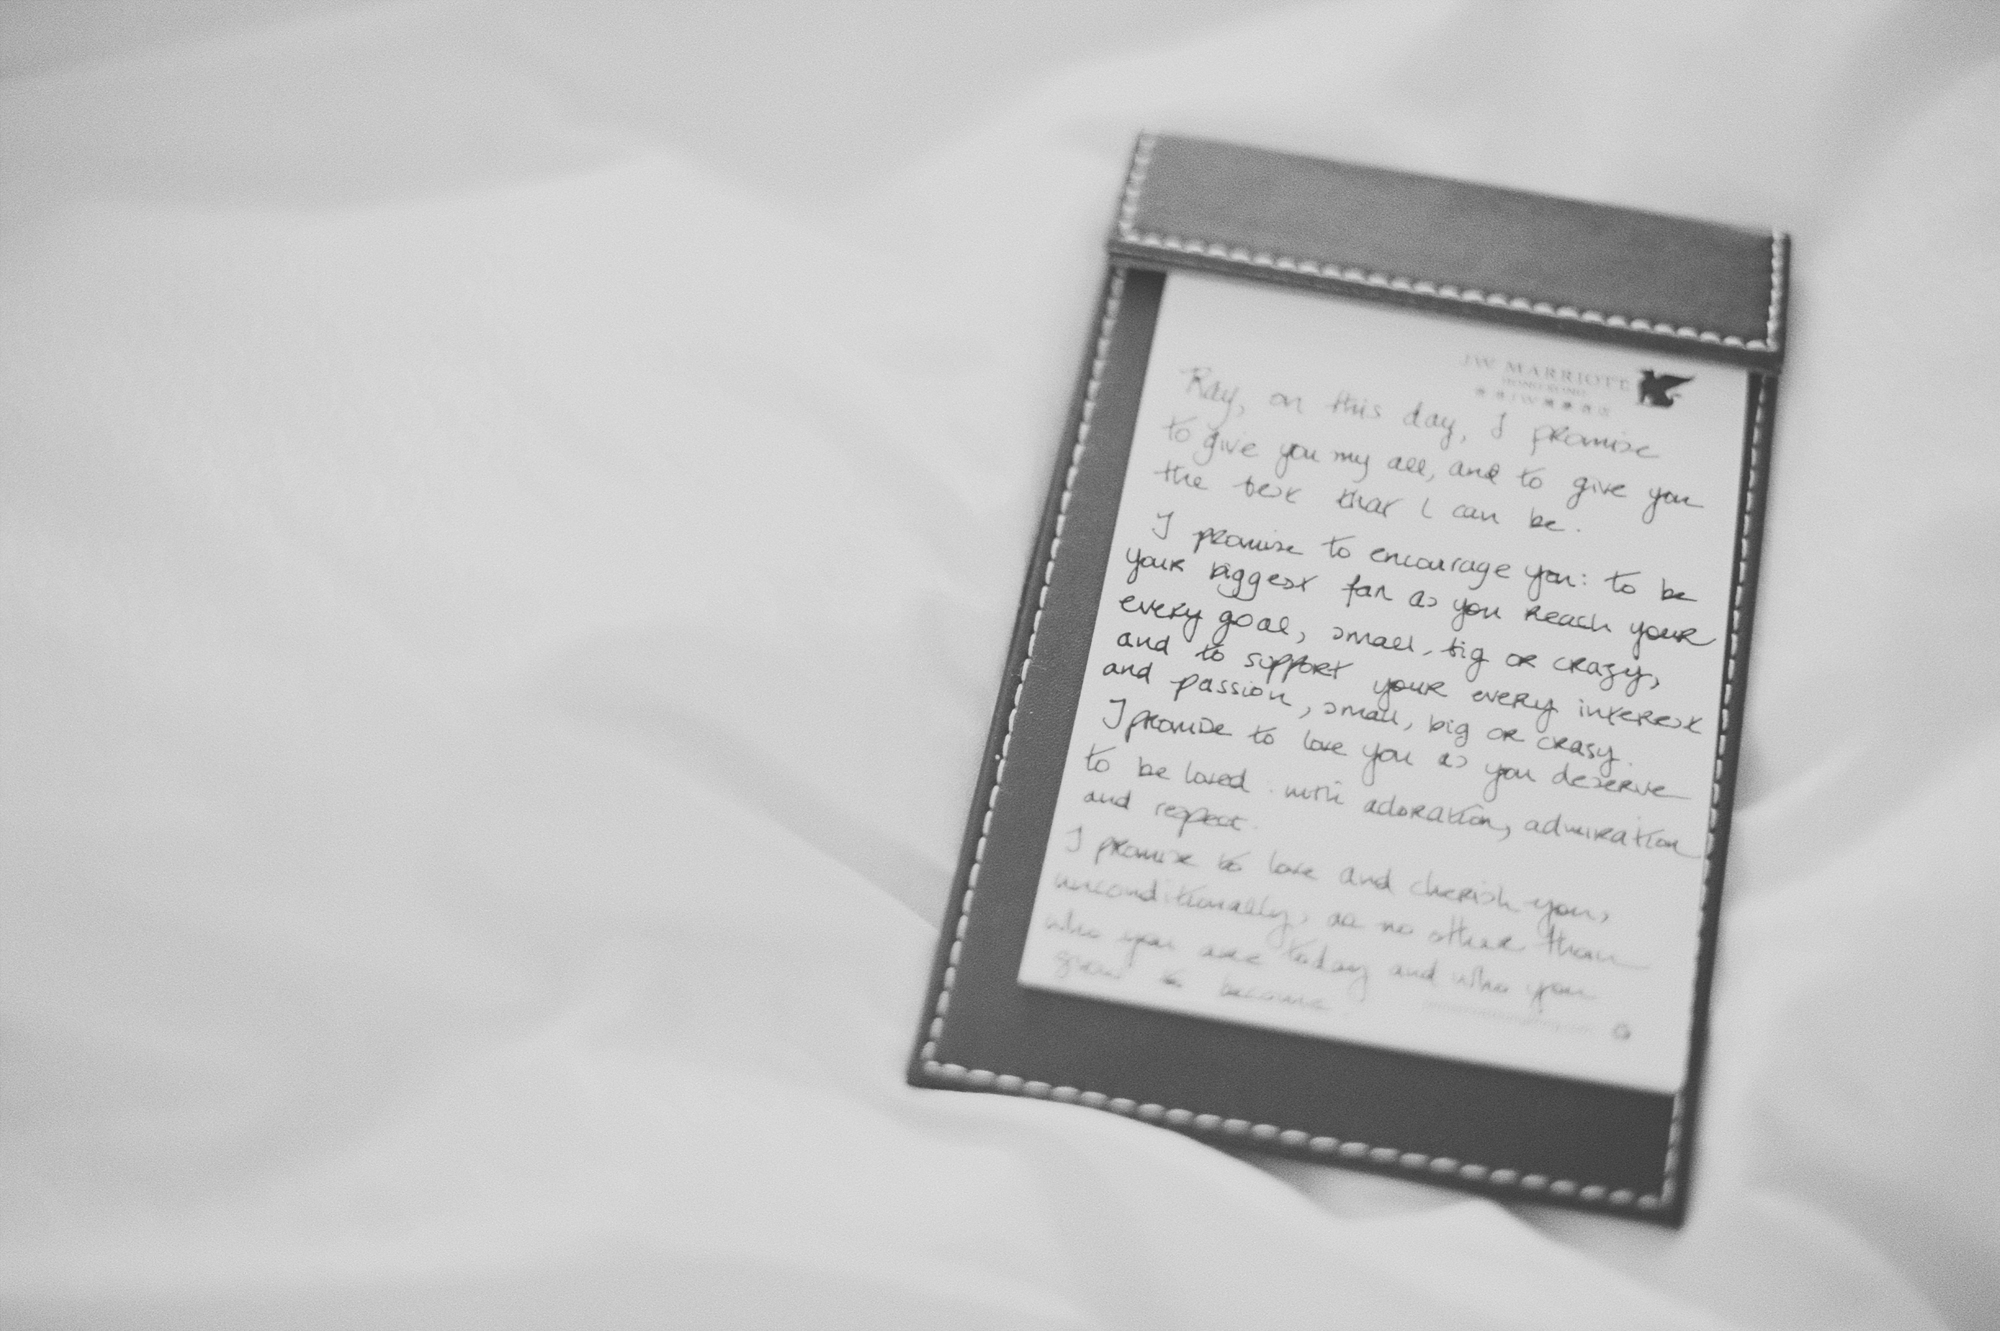 JW MARRIOTT
HONG KONG
Ray, on this day, I promise
to give you my all, and to give you
the best that I can be.
I promise to encourage you: to be
your biggest fan as you reach your
every goal, small, big or crazy,
and to support your every interest
and passion, small, big or crasy.
I promise to love you as you deserve
to be loved. with adoration, admiration
and respect.
I promise to love and cherish you,
unconditionally, as no other than
who you are today and who you
grow to become.